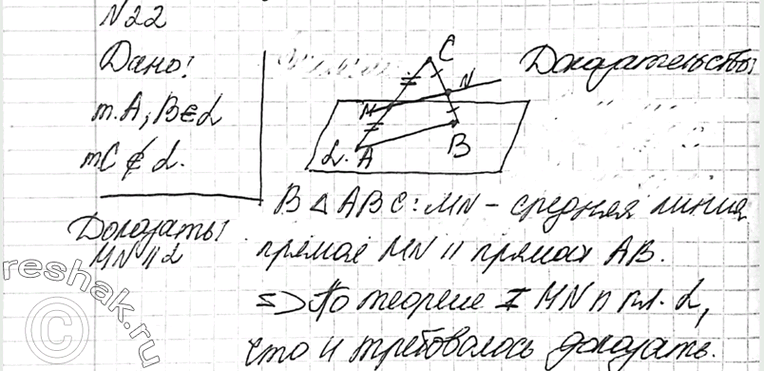 N22
Дано:
т.A, B∈α
тC ∉ α.
Доказать:
MN ∥ α
C
N
M
α. A
B
Доказательство:
В △ABC: MN - средняя линия,
прямая MN ∥ прямая AB.
=> По теореме I MN ∥ пл. α,
что и требовалось доказать.
reshak.ru
©